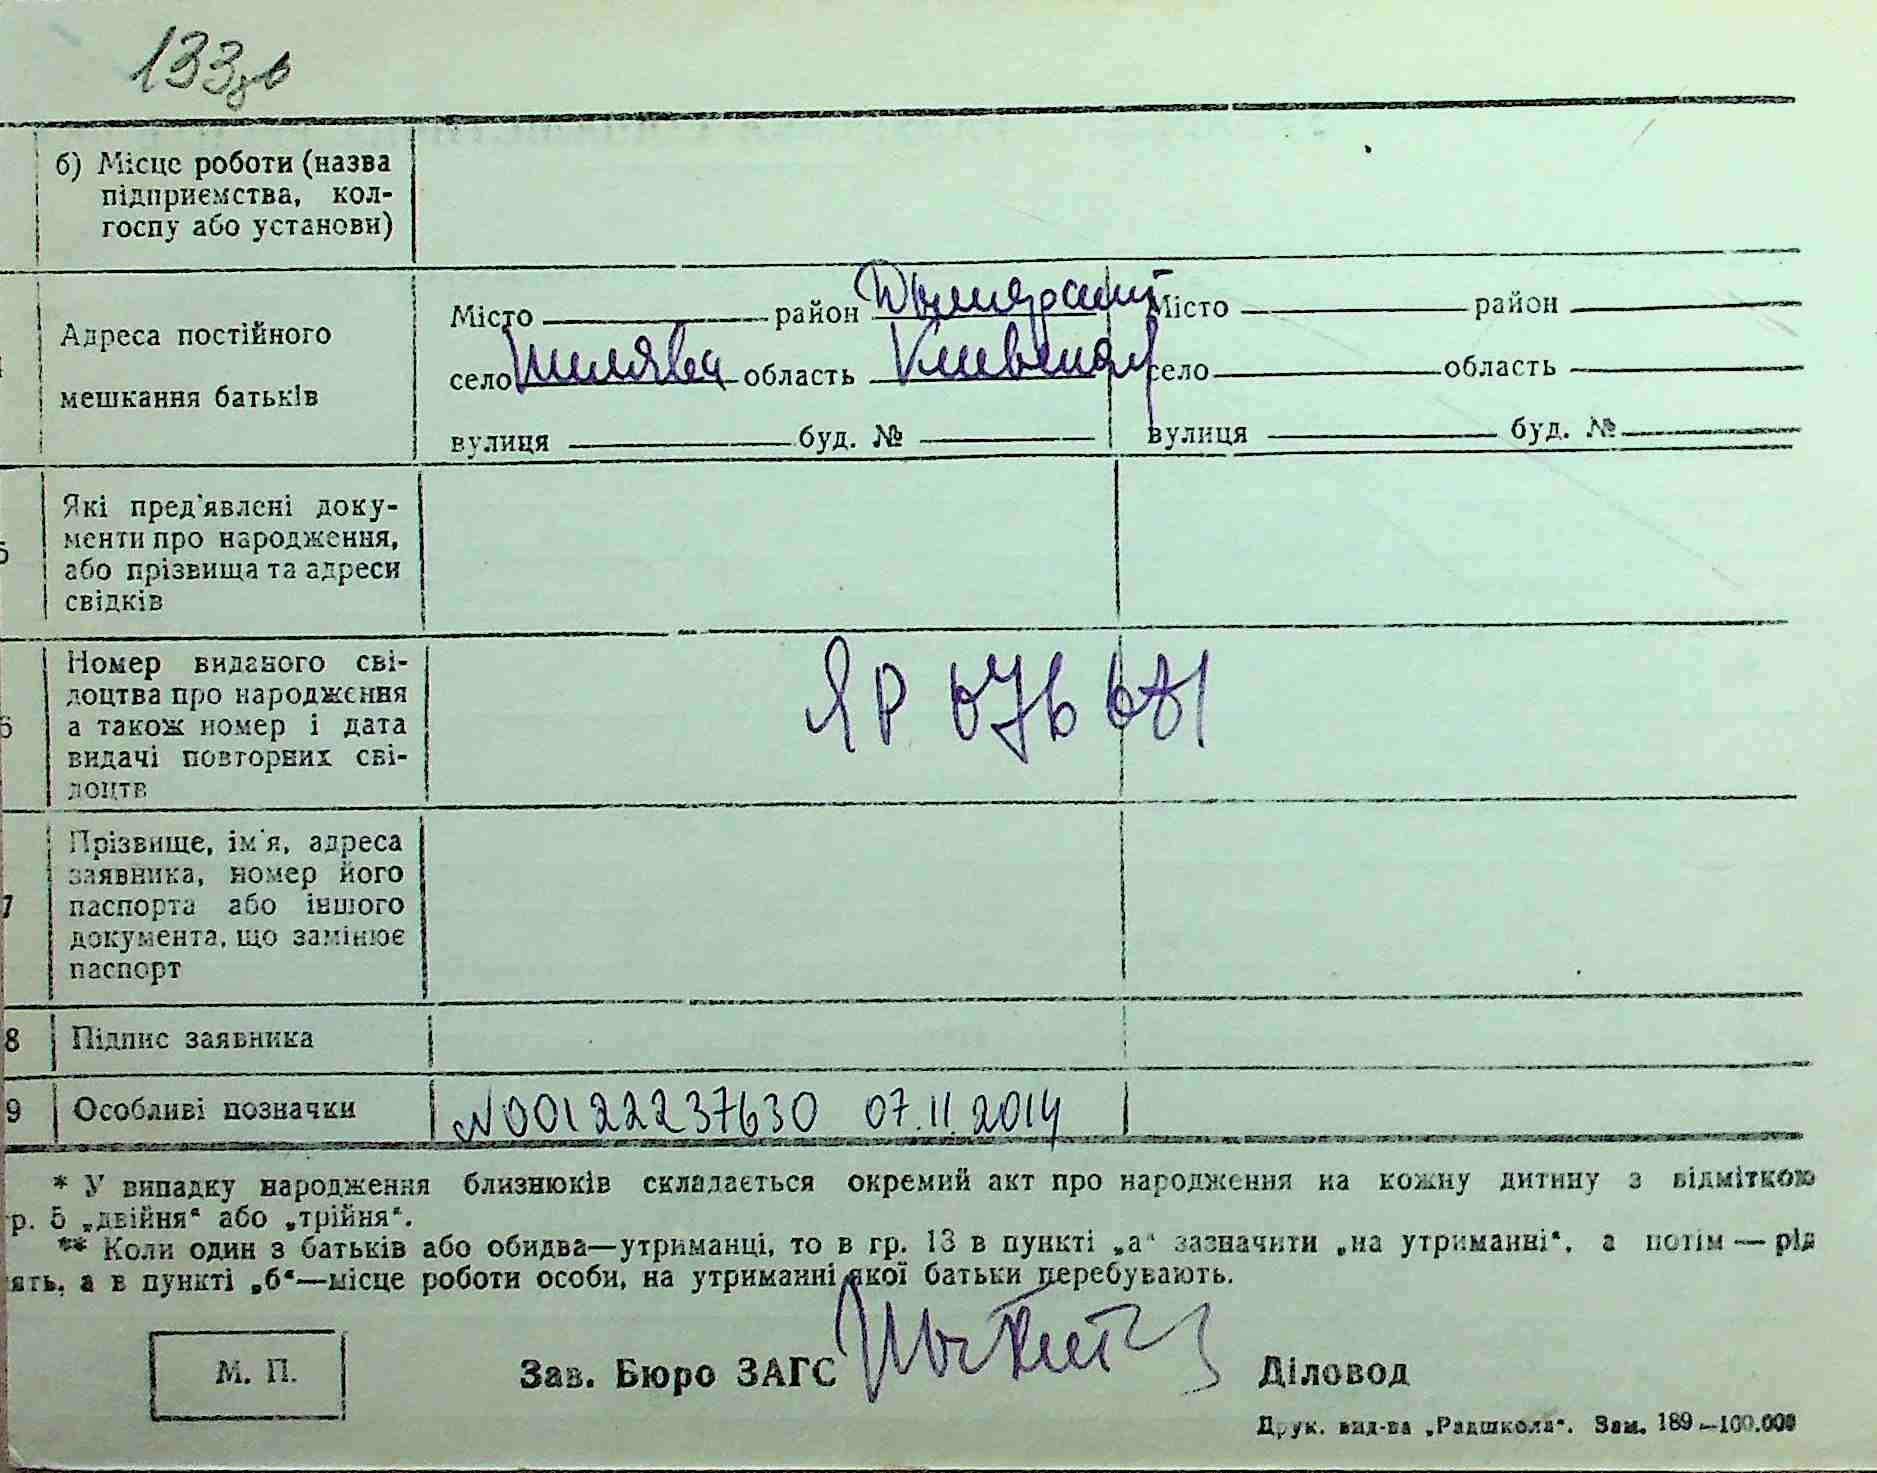 133зв
б) Місце роботи (назва
підприємства, кол-
госпу або установи)
Адреса постійного
мешкання батьків
Місто район Дымерский
село область Киевская
вулиця буд. №
Місто район
село область
вулиця буд. №
5 Які пред'явлені доку-
менти про народження,
або прізвища та адреси
свідків
6 Номер виданого сві-
доцтва про народження
а також номер і дата
видачі повторних сві-
доцтв
ЯР 076 681
7 Прізвище, ім'я, адреса
заявника, номер його
паспорта або іншого
документа, що замінює
паспорт
8 Підпис заявника
9 Особливі позначки N00122237630 07.11.2014
* У випадку народження близнюків складається окремий акт про народження на кожну дитину з відміткою
гр. 5 „двійня“ або „трійня“.
** Коли один з батьків або обидва—утриманці, то в гр. 13 в пункті „а“ зазначити „на утриманні“, а потім — рід
ять, а в пункті „б“—місце роботи особи, на утриманні якої батьки перебувають.
М. П.
Зав. Бюро ЗАГС
Діловод
Друк. вид-ва „Радшкола“. Зам. 189—100.000